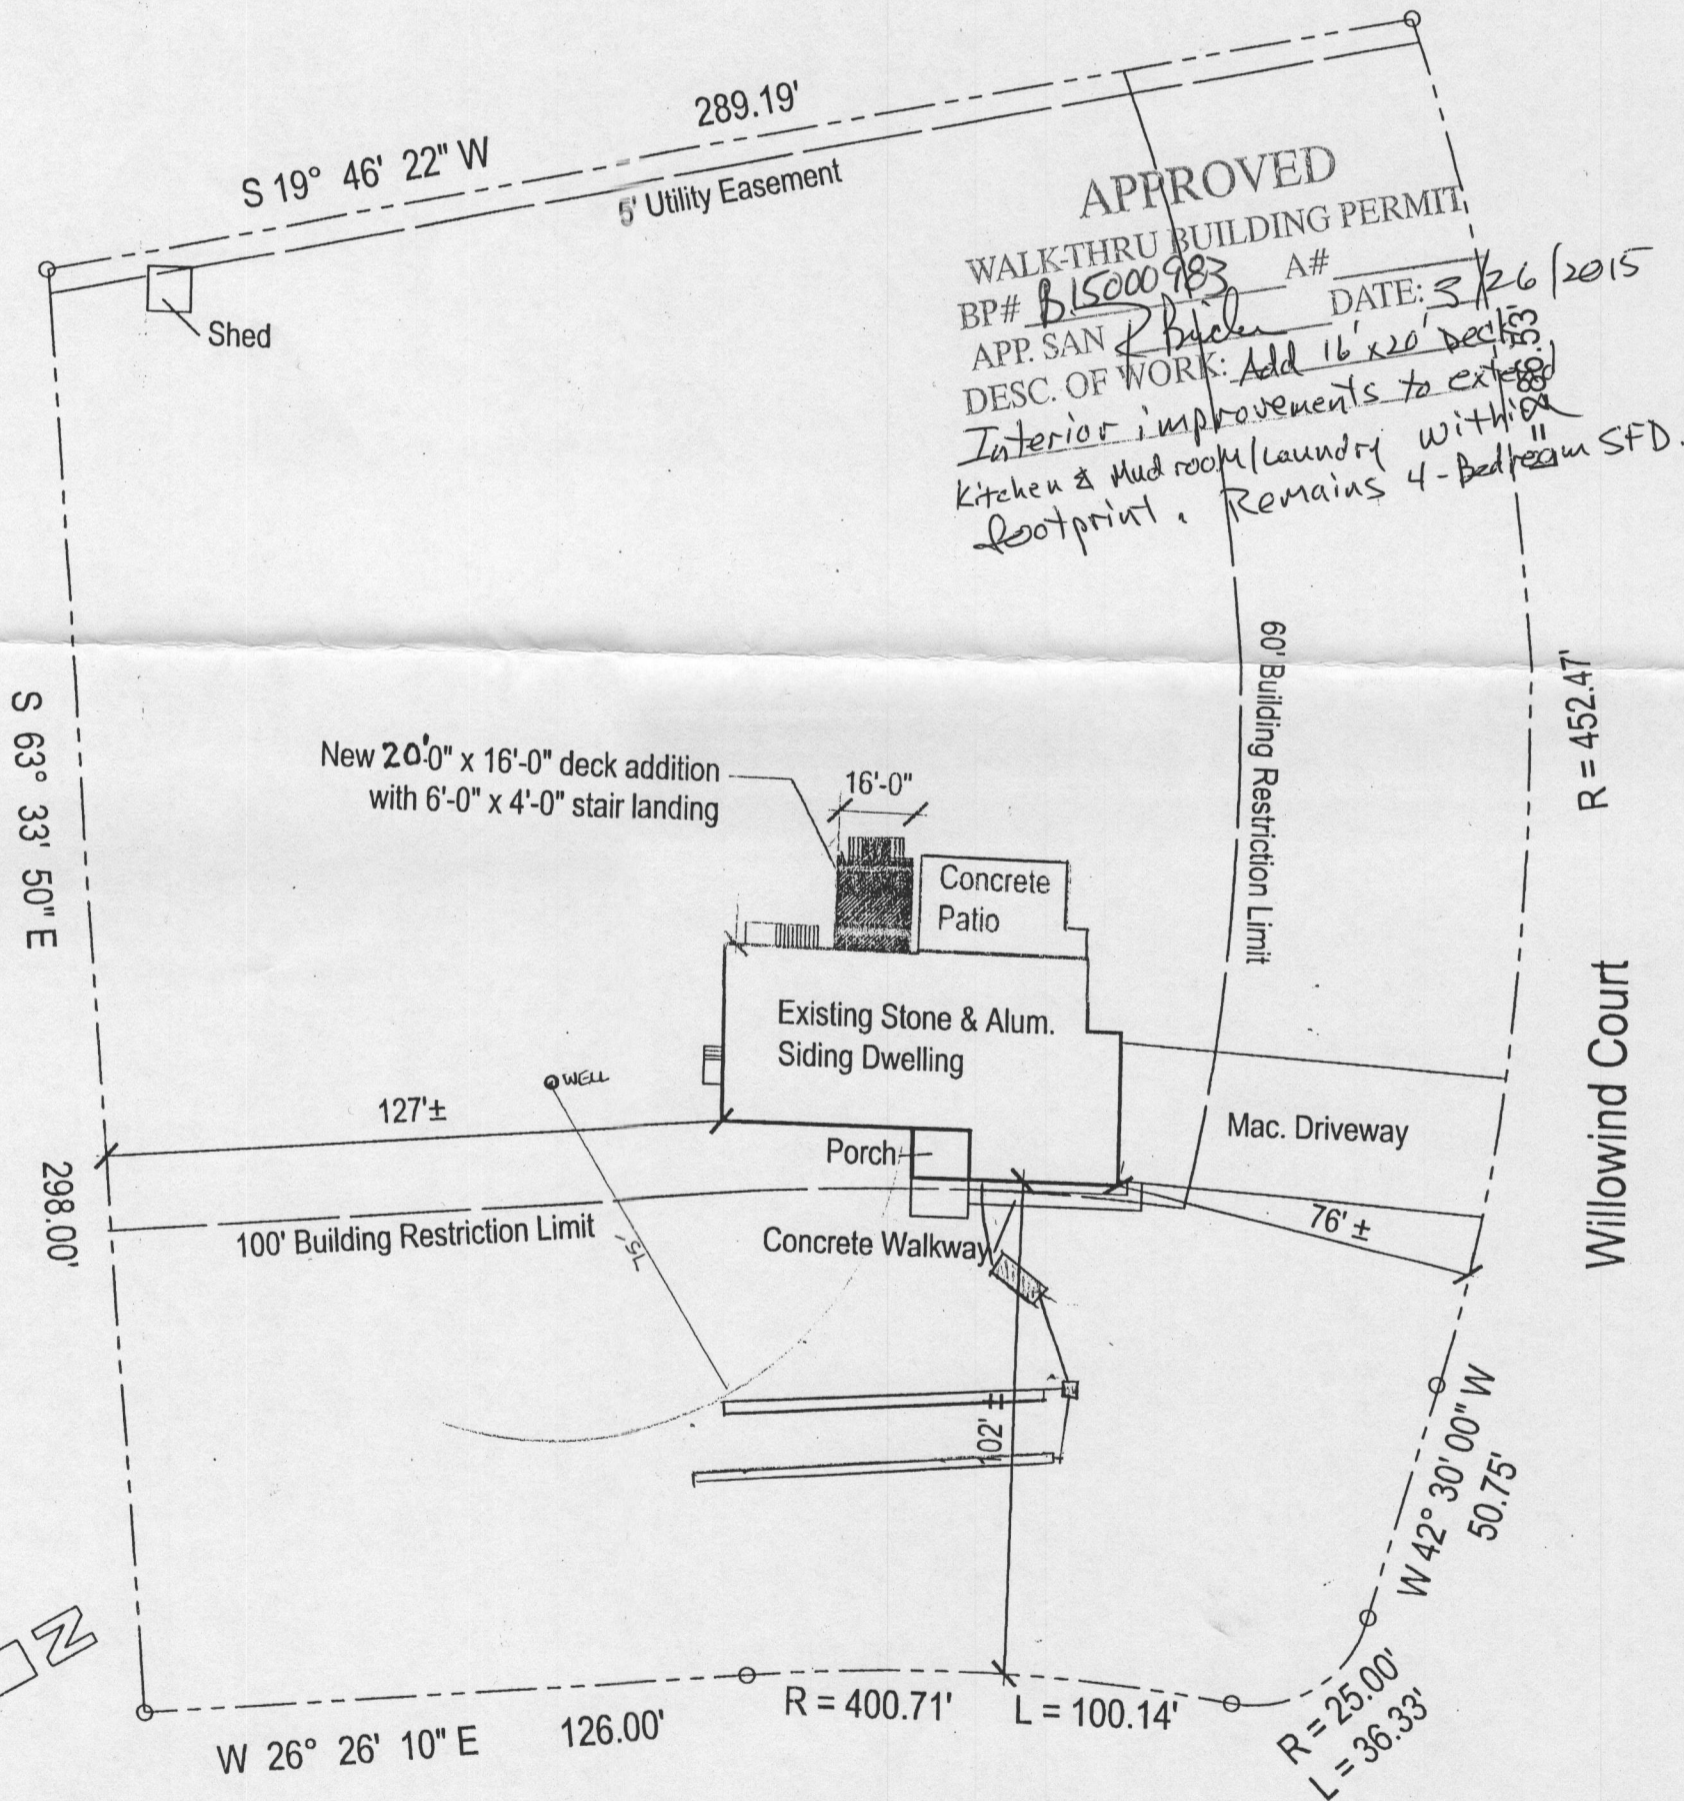 289.19'
S 19° 46' 22" W
5' Utility Easement
Shed
APPROVED
WALK-THRU BUILDING PERMIT
BP# B15000983 A#
APP. SAN DATE: 3/26/2015
DESC. OF WORK: Add 16'x20' Deck
Interior improvements to extend
Kitchen & Mud room/Laundry within
footprint. Remains 4-Bedroom SFD.
R = 452.47'
60' Building Restriction Limit
S 63° 33' 50" E
298.00'
New 20'0" x 16'-0" deck addition
with 6'-0" x 4'-0" stair landing
16'-0"
Concrete
Patio
Existing Stone & Alum.
Siding Dwelling
WELL
127'±
Porch
Mac. Driveway
Willowind Court
100' Building Restriction Limit
75'
Concrete Walkway
76' ±
102' ±
W 42° 30' 00" W
50.75'
N
W 26° 26' 10" E
126.00'
R = 400.71'
L = 100.14'
R = 25.00'
L = 36.33'